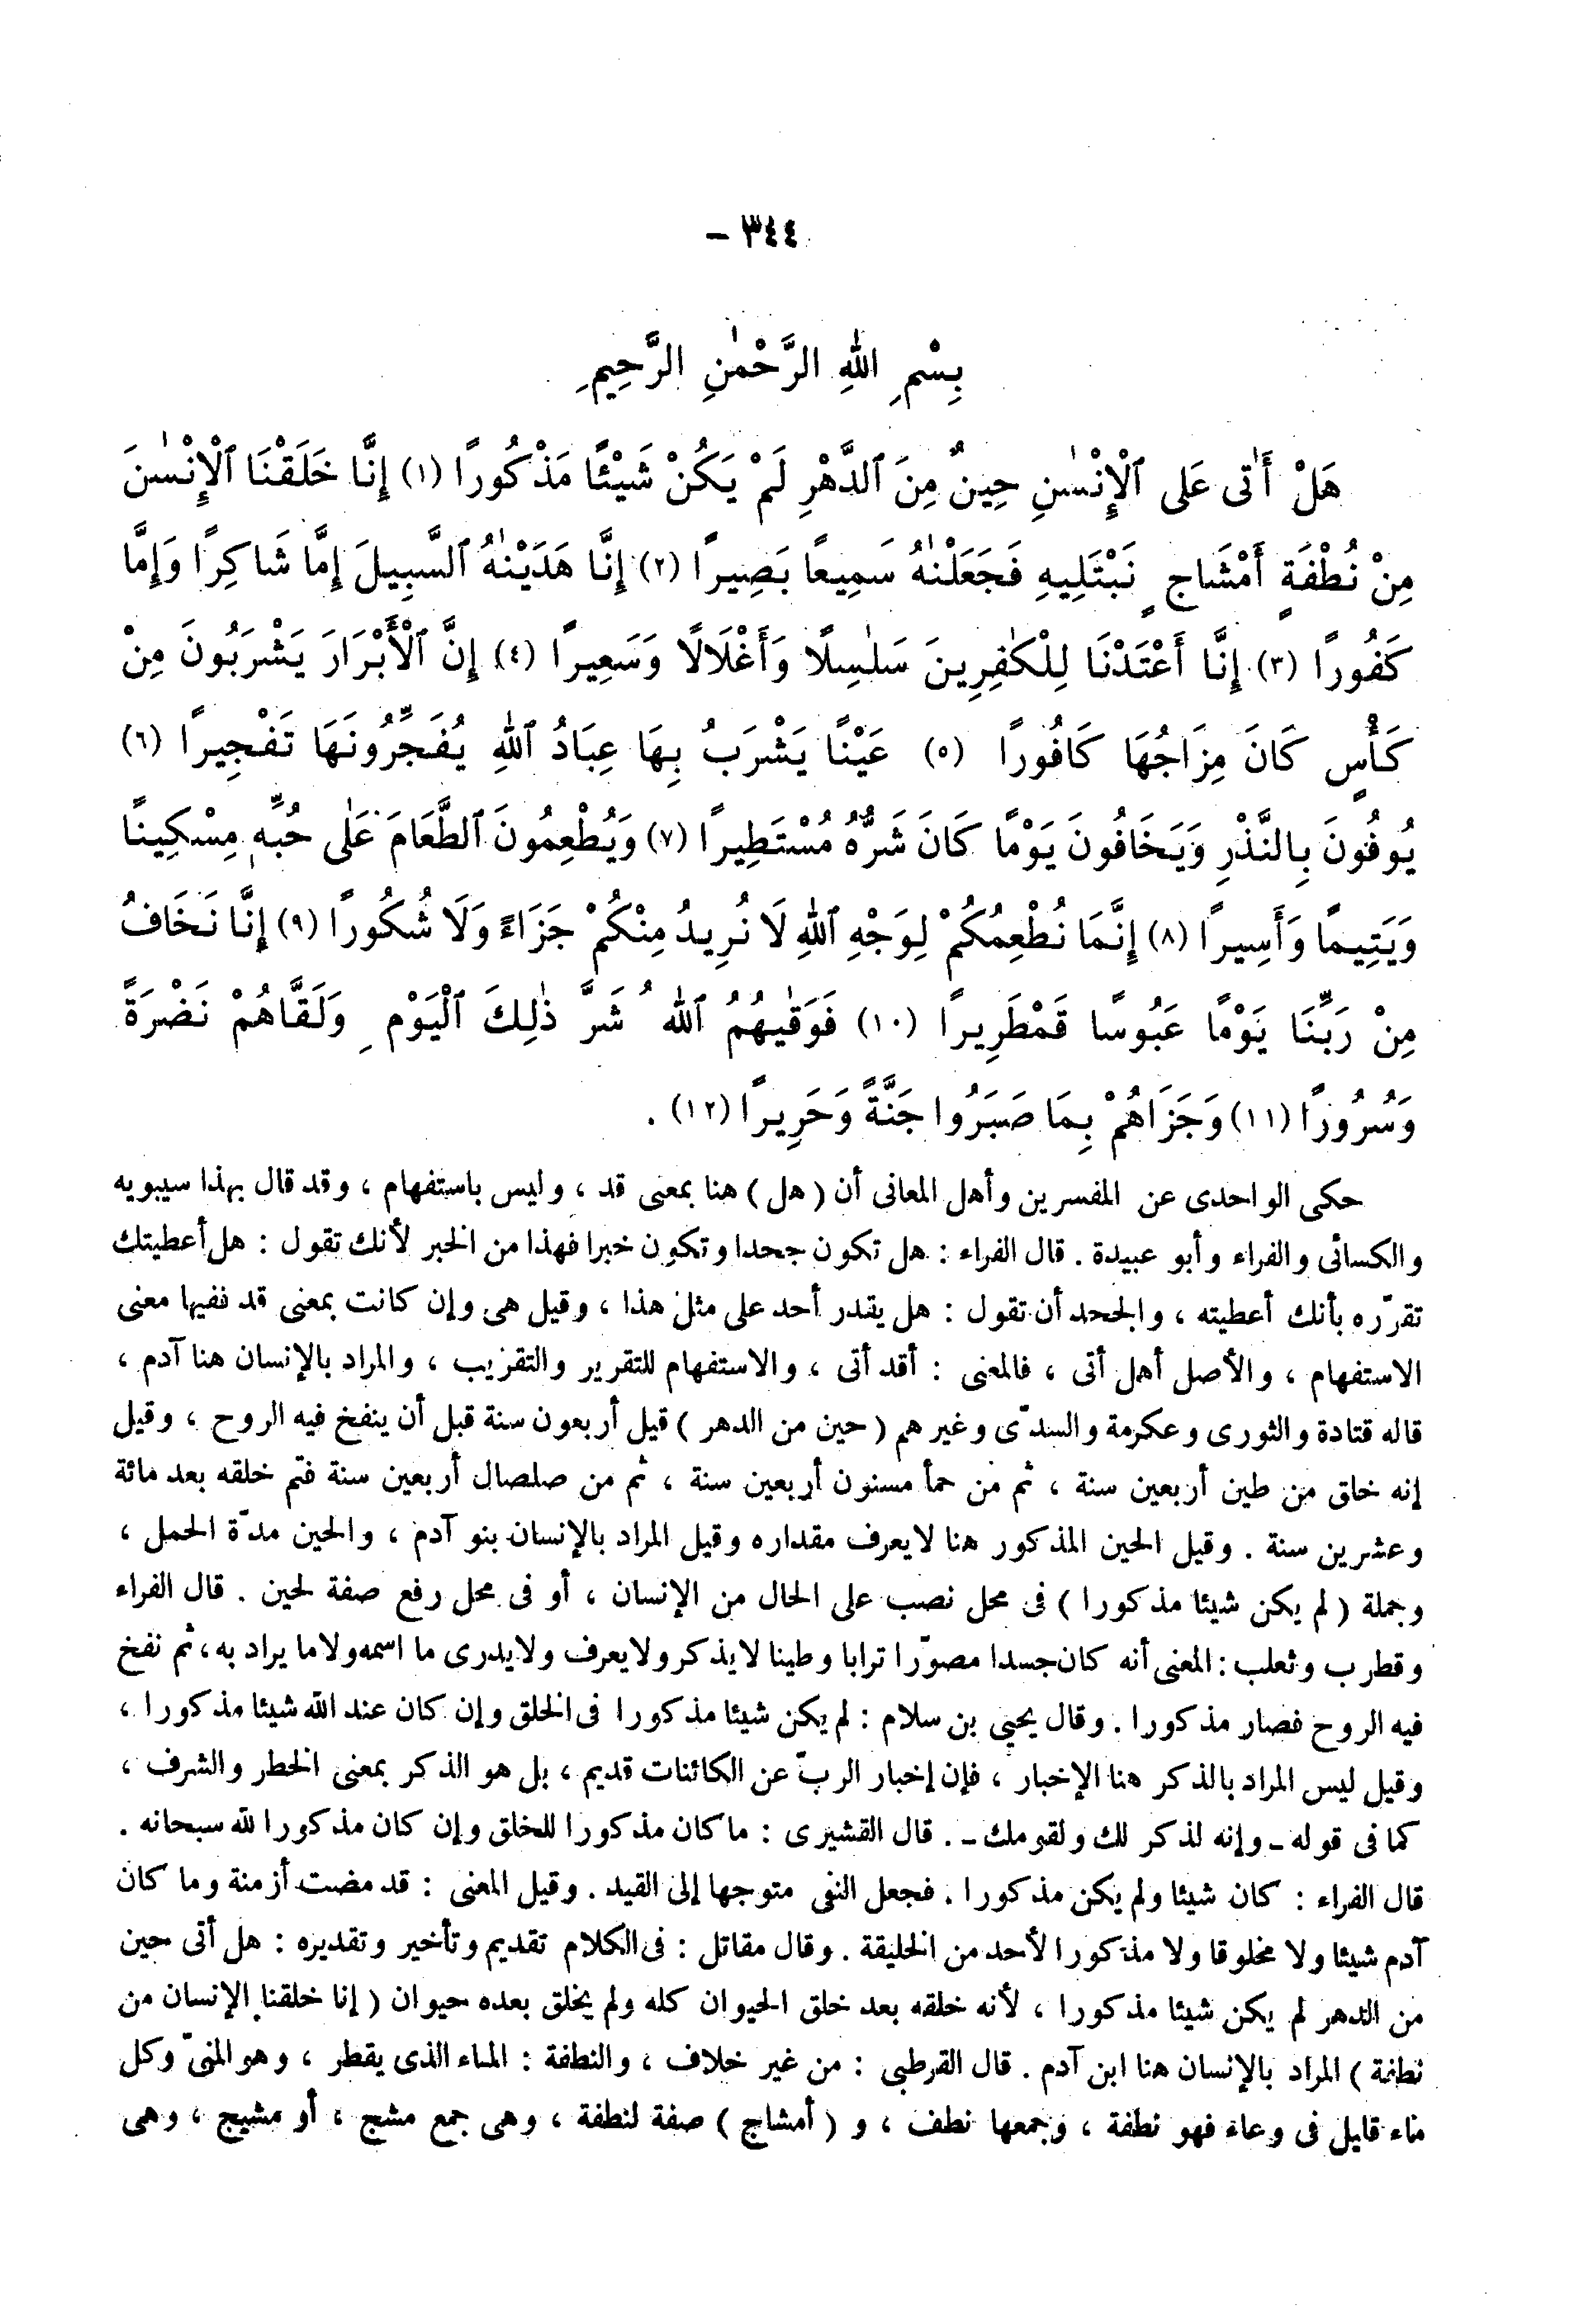 ٣٤٤ –
بِسْمِ اللهِ الرَّحْمٰنِ الرَّحِيمِ
هَلْ أَتٰى عَلَى ٱلْإِنْسٰنِ حِينٌ مِنَ ٱلدَّهْرِ لَمْ يَكُنْ شَيْئًا مَذْكُورًا (١) إِنَّا خَلَقْنَا ٱلْإِنْسٰنَ
مِنْ نُطْفَةٍ أَمْشَاجٍ نَبْتَلِيهِ فَجَعَلْنٰهُ سَمِيعًا بَصِيرًا (٢) إِنَّا هَدَيْنٰهُ ٱلسَّبِيلَ إِمَّا شَاكِرًا وَإِمَّا
كَفُورًا (٣) إِنَّا أَعْتَدْنَا لِلْكٰفِرِينَ سَلٰسِلًا وَأَغْلَالًا وَسَعِيرًا (٤) إِنَّ ٱلْأَبْرَارَ يَشْرَبُونَ مِنْ
كَأْسٍ كَانَ مِزَاجُهَا كَافُورًا (٥) عَيْنًا يَشْرَبُ بِهَا عِبَادُ ٱللهِ يُفَجِّرُونَهَا تَفْجِيرًا (٦)
يُوفُونَ بِالنَّذْرِ وَيَخَافُونَ يَوْمًا كَانَ شَرُّهُ مُسْتَطِيرًا (٧) وَيُطْعِمُونَ ٱلطَّعَامَ عَلٰى حُبِّهِ مِسْكِينًا
وَيَتِيمًا وَأَسِيرًا (٨) إِنَّمَا نُطْعِمُكُمْ لِوَجْهِ ٱللهِ لَا نُرِيدُ مِنْكُمْ جَزَاءً وَلَا شُكُورًا (٩) إِنَّا نَخَافُ
مِنْ رَبِّنَا يَوْمًا عَبُوسًا قَمْطَرِيرًا (١٠) فَوَقٰيهُمُ ٱللهُ شَرَّ ذٰلِكَ ٱلْيَوْمِ وَلَقَّاهُمْ نَضْرَةً
وَسُرُورًا (١١) وَجَزَاهُمْ بِمَا صَبَرُوا جَنَّةً وَحَرِيرًا (١٢) .
حكى الواحدى عن المفسرين وأهل المعانى أن ( هل ) هنا بمعنى قد ، وليس باستفهام ، وقد قال بهذا سيبويه
والكسائى والفراء وأبو عبيدة . قال الفراء : هل تكون جحدا وتكون خبرا فهذا من الخبر لأنك تقول : هل أعطيتك
تقرّره بأنك أعطيته ، والجحد أن تقول : هل يقدر أحد على مثل هذا ، وقيل هى وإن كانت بمعنى قد ففيها معنى
الاستفهام ، والأصل أهل أتى ، فالمعنى : أقد أتى ، والاستفهام للتقرير والتقريب ، والمراد بالإنسان هنا آدم ،
قاله قتادة والثورى وعكرمة والسدّى وغيرهم ( حين من الدهر ) قيل أربعون سنة قبل أن ينفخ فيه الروح ، وقيل
إنه خلق من طين أربعين سنة ، ثم من حمأ مسنون أربعين سنة ، ثم من صلصال أربعين سنة فتم خلقه بعد مائة
وعشرين سنة . وقيل الحين المذكور هنا لايعرف مقداره وقيل المراد بالإنسان بنو آدم ، والحين مدّة الحمل ،
وجملة ( لم يكن شيئا مذكورا ) فى محل نصب على الحال من الإنسان ، أو فى محل رفع صفة لحين . قال الفراء
وقطرب وثعلب : المعنى أنه كان جسدا مصوّرا ترابا وطينا لايذكر ولايعرف ولايدرى ما اسمه ولاما يراد به ، ثم نفخ
فيه الروح فصار مذكورا . وقال يحيى بن سلام : لم يكن شيئا مذكورا فى الخلق وإن كان عند الله شيئا مذكورا ،
وقيل ليس المراد بالذكر هنا الإخبار ، فإن إخبار الربّ عن الكائنات قديم ، بل هو الذكر بمعنى الخطر والشرف ،
كما فى قوله ـ وإنه لذكر لك ولقومك ـ . قال القشيرى : ماكان مذكورا للخلق وإن كان مذكورا لله سبحانه .
قال الفراء : كان شيئا ولم يكن مذكورا . فجعل النفى متوجها إلى القيد . وقيل المعنى : قد مضت أزمنة وما كان
آدم شيئا ولا مخلوقا ولا مذكورا لأحد من الخليقة . وقال مقاتل : فى الكلام تقديم وتأخير وتقديره : هل أتى حين
من الدهر لم يكن شيئا مذكورا ، لأنه خلقه بعد خلق الحيوان كله ولم يخلق بعده حيوان ( إنا خلقنا الإنسان من
نطفة ) المراد بالإنسان هنا ابن آدم . قال القرطبى : من غير خلاف ، والنطفة : الماء الذى يقطر ، وهو المنىّ وكل
ماء قليل فى وعاء فهو نطفة ، وجمعها نطف ، و ( أمشاج ) صفة لنطفة ، وهى جمع مشج ، أو مشيج ، وهى